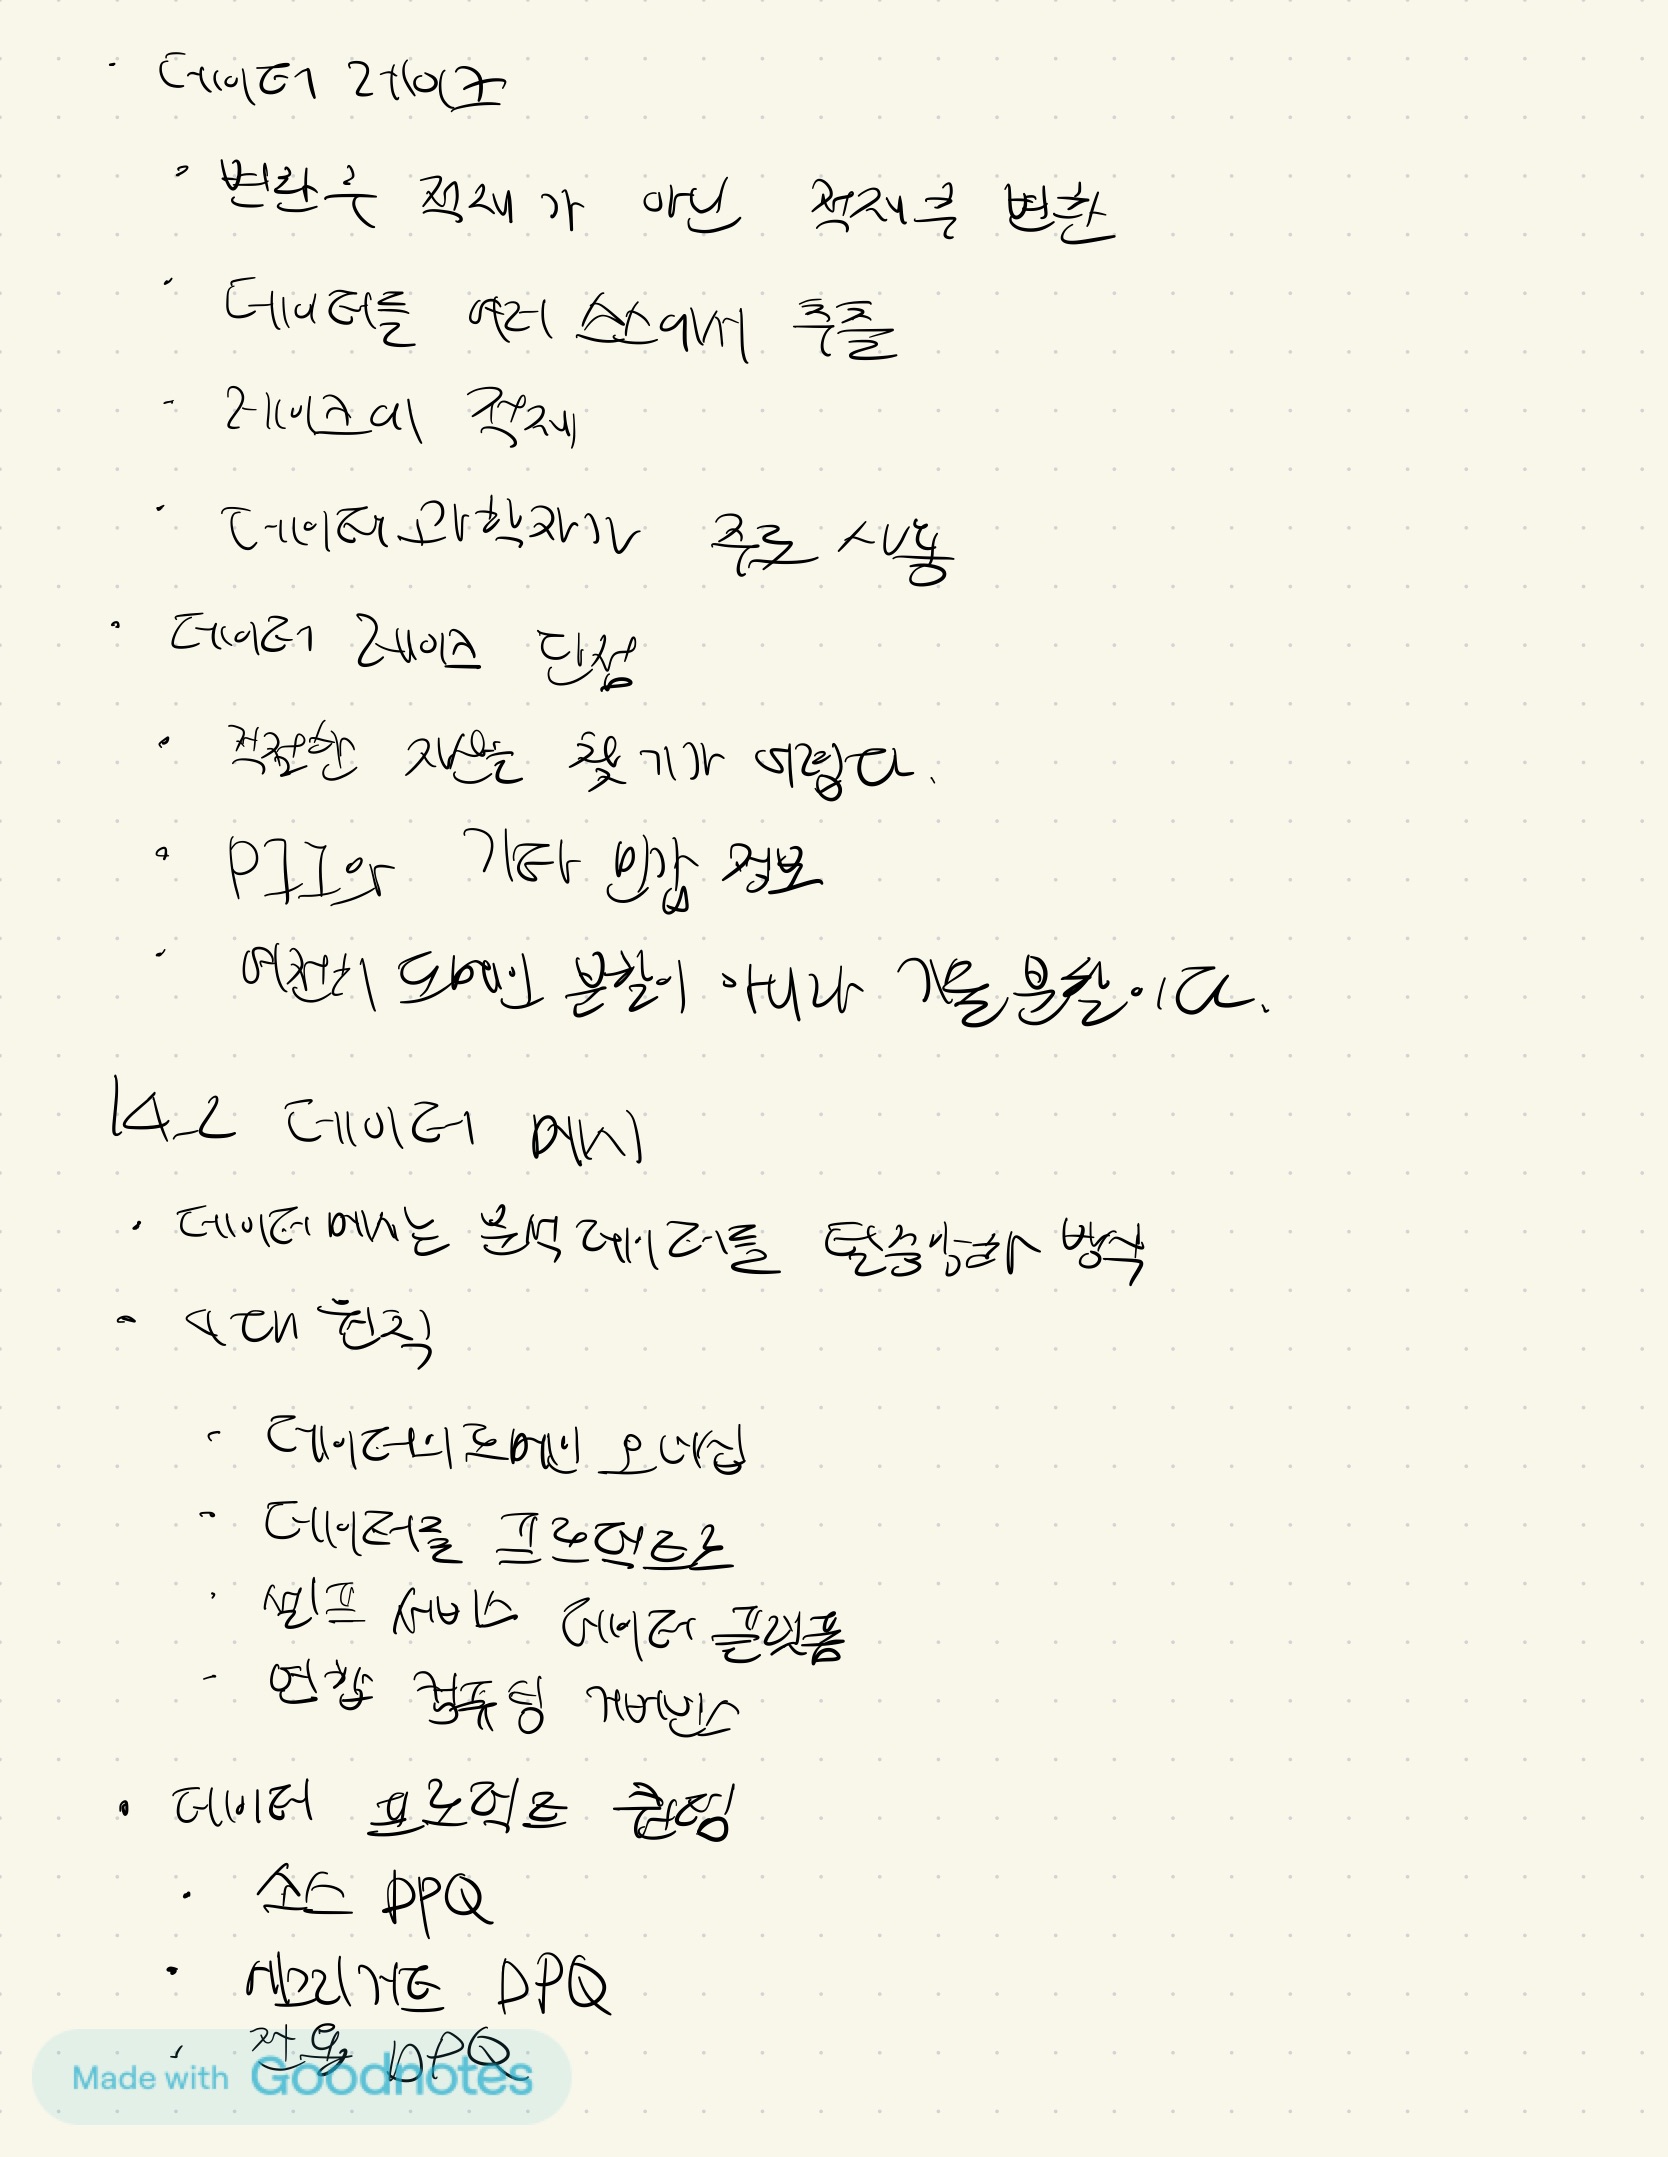 · 데이터 레이크
· 변환 후 적재가 아닌 적재 후 변환
· 데이터를 여러 소스에서 추출
- 레이크에 적재
· 데이터 과학자가 주로 사용
· 데이터 레이크 단점
· 적절한 자산을 찾기가 어렵다.
· PII와 기타 민감 정보
· 여전히 도메인 분할이 아니라 기술 분할이다.
14.2 데이터 메시
· 데이터 메시는 분석 데이터를 탈중앙화 방식
· 4대 원칙
- 데이터의 도메인 오너십
- 데이터를 프로덕트로
· 셀프 서비스 데이터 플랫폼
- 연합 컴퓨팅 거버넌스
· 데이터 프로덕트 퀀텀
· 소스 DPQ
· 애그리거트 DPQ
· 전용 DPQ
Made with Goodnotes